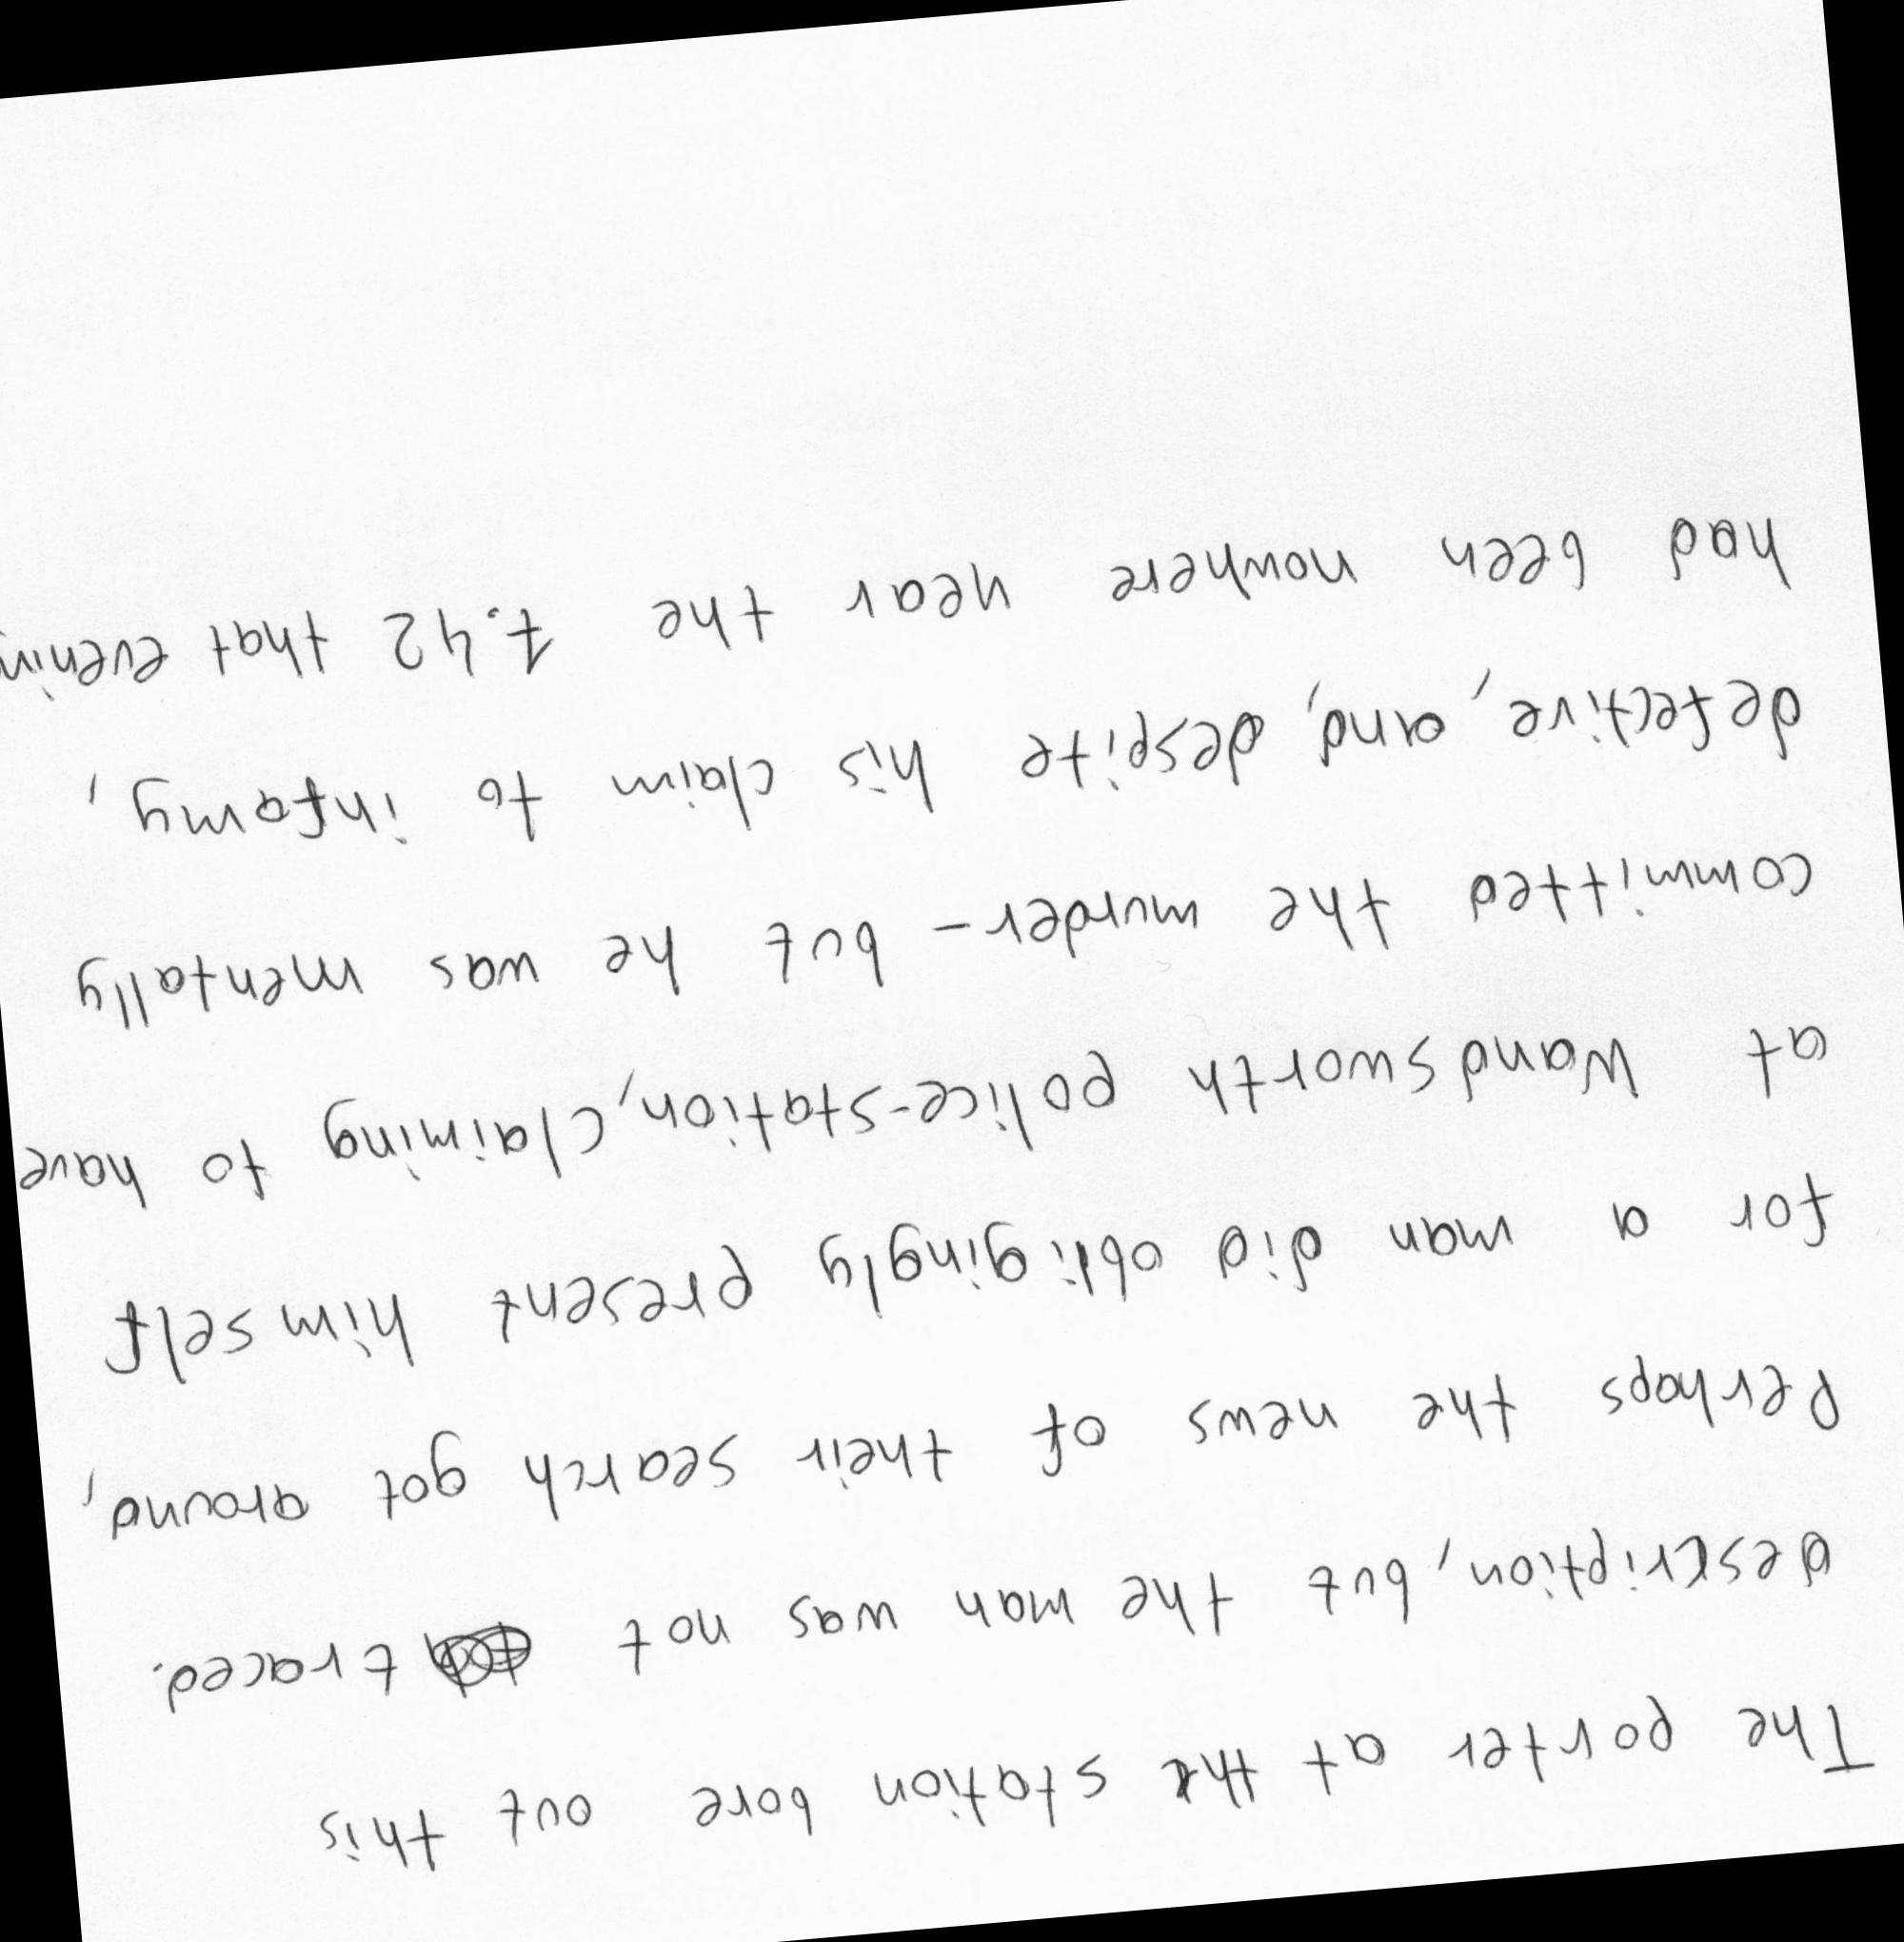 The porter at the station bore out this
description, but the man was not traced.
Perhaps the news of their search got around,
for a man did obligingly present himself
at Wandsworth police-station, claiming to have
committed the murder - but he was mentally
defective, and, despite his claim to infamy,
had been nowhere near the 7.42 that evenin